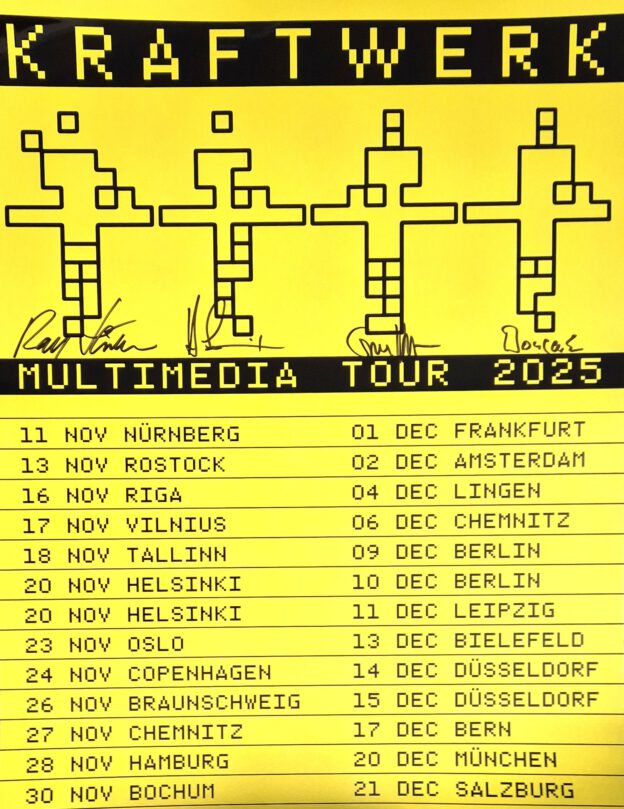 KRAFTWERK
MULTIMEDIA TOUR 2025
11 NOV NÜRNBERG
13 NOV ROSTOCK
16 NOV RIGA
17 NOV VILNIUS
18 NOV TALLINN
20 NOV HELSINKI
20 NOV HELSINKI
23 NOV OSLO
24 NOV COPENHAGEN
26 NOV BRAUNSCHWEIG
27 NOV CHEMNITZ
28 NOV HAMBURG
30 NOV BOCHUM
01 DEC FRANKFURT
02 DEC AMSTERDAM
04 DEC LINGEN
06 DEC CHEMNITZ
09 DEC BERLIN
10 DEC BERLIN
11 DEC LEIPZIG
13 DEC BIELEFELD
14 DEC DÜSSELDORF
15 DEC DÜSSELDORF
17 DEC BERN
20 DEC MÜNCHEN
21 DEC SALZBURG